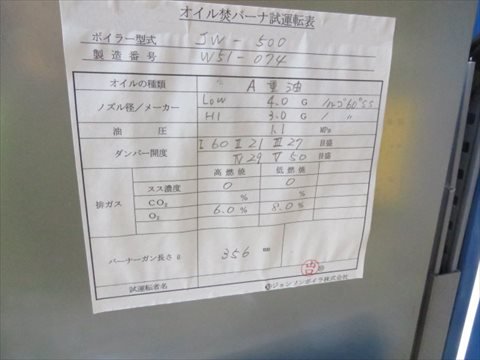 オイル焚バーナ試運転表
ボイラー型式 JW-500
製造番号 W51-074
オイルの種類 A重油
ノズル径/メーカー Low 4.0 G ノルゴ60°SS
HI 3.0 G 〃 〃
油圧 1.1 MPa
ダンパー開度 Ⅰ60 Ⅱ21 Ⅲ27 目盛
Ⅳ29 Ⅴ50 目盛
高燃焼 低燃焼
排ガス スス濃度 0 0
CO₂ % %
O₂ 6.0% 8.0%
バーナーガン長さℓ 356 mm
試運転者名 ジョンソンボイラ株式会社